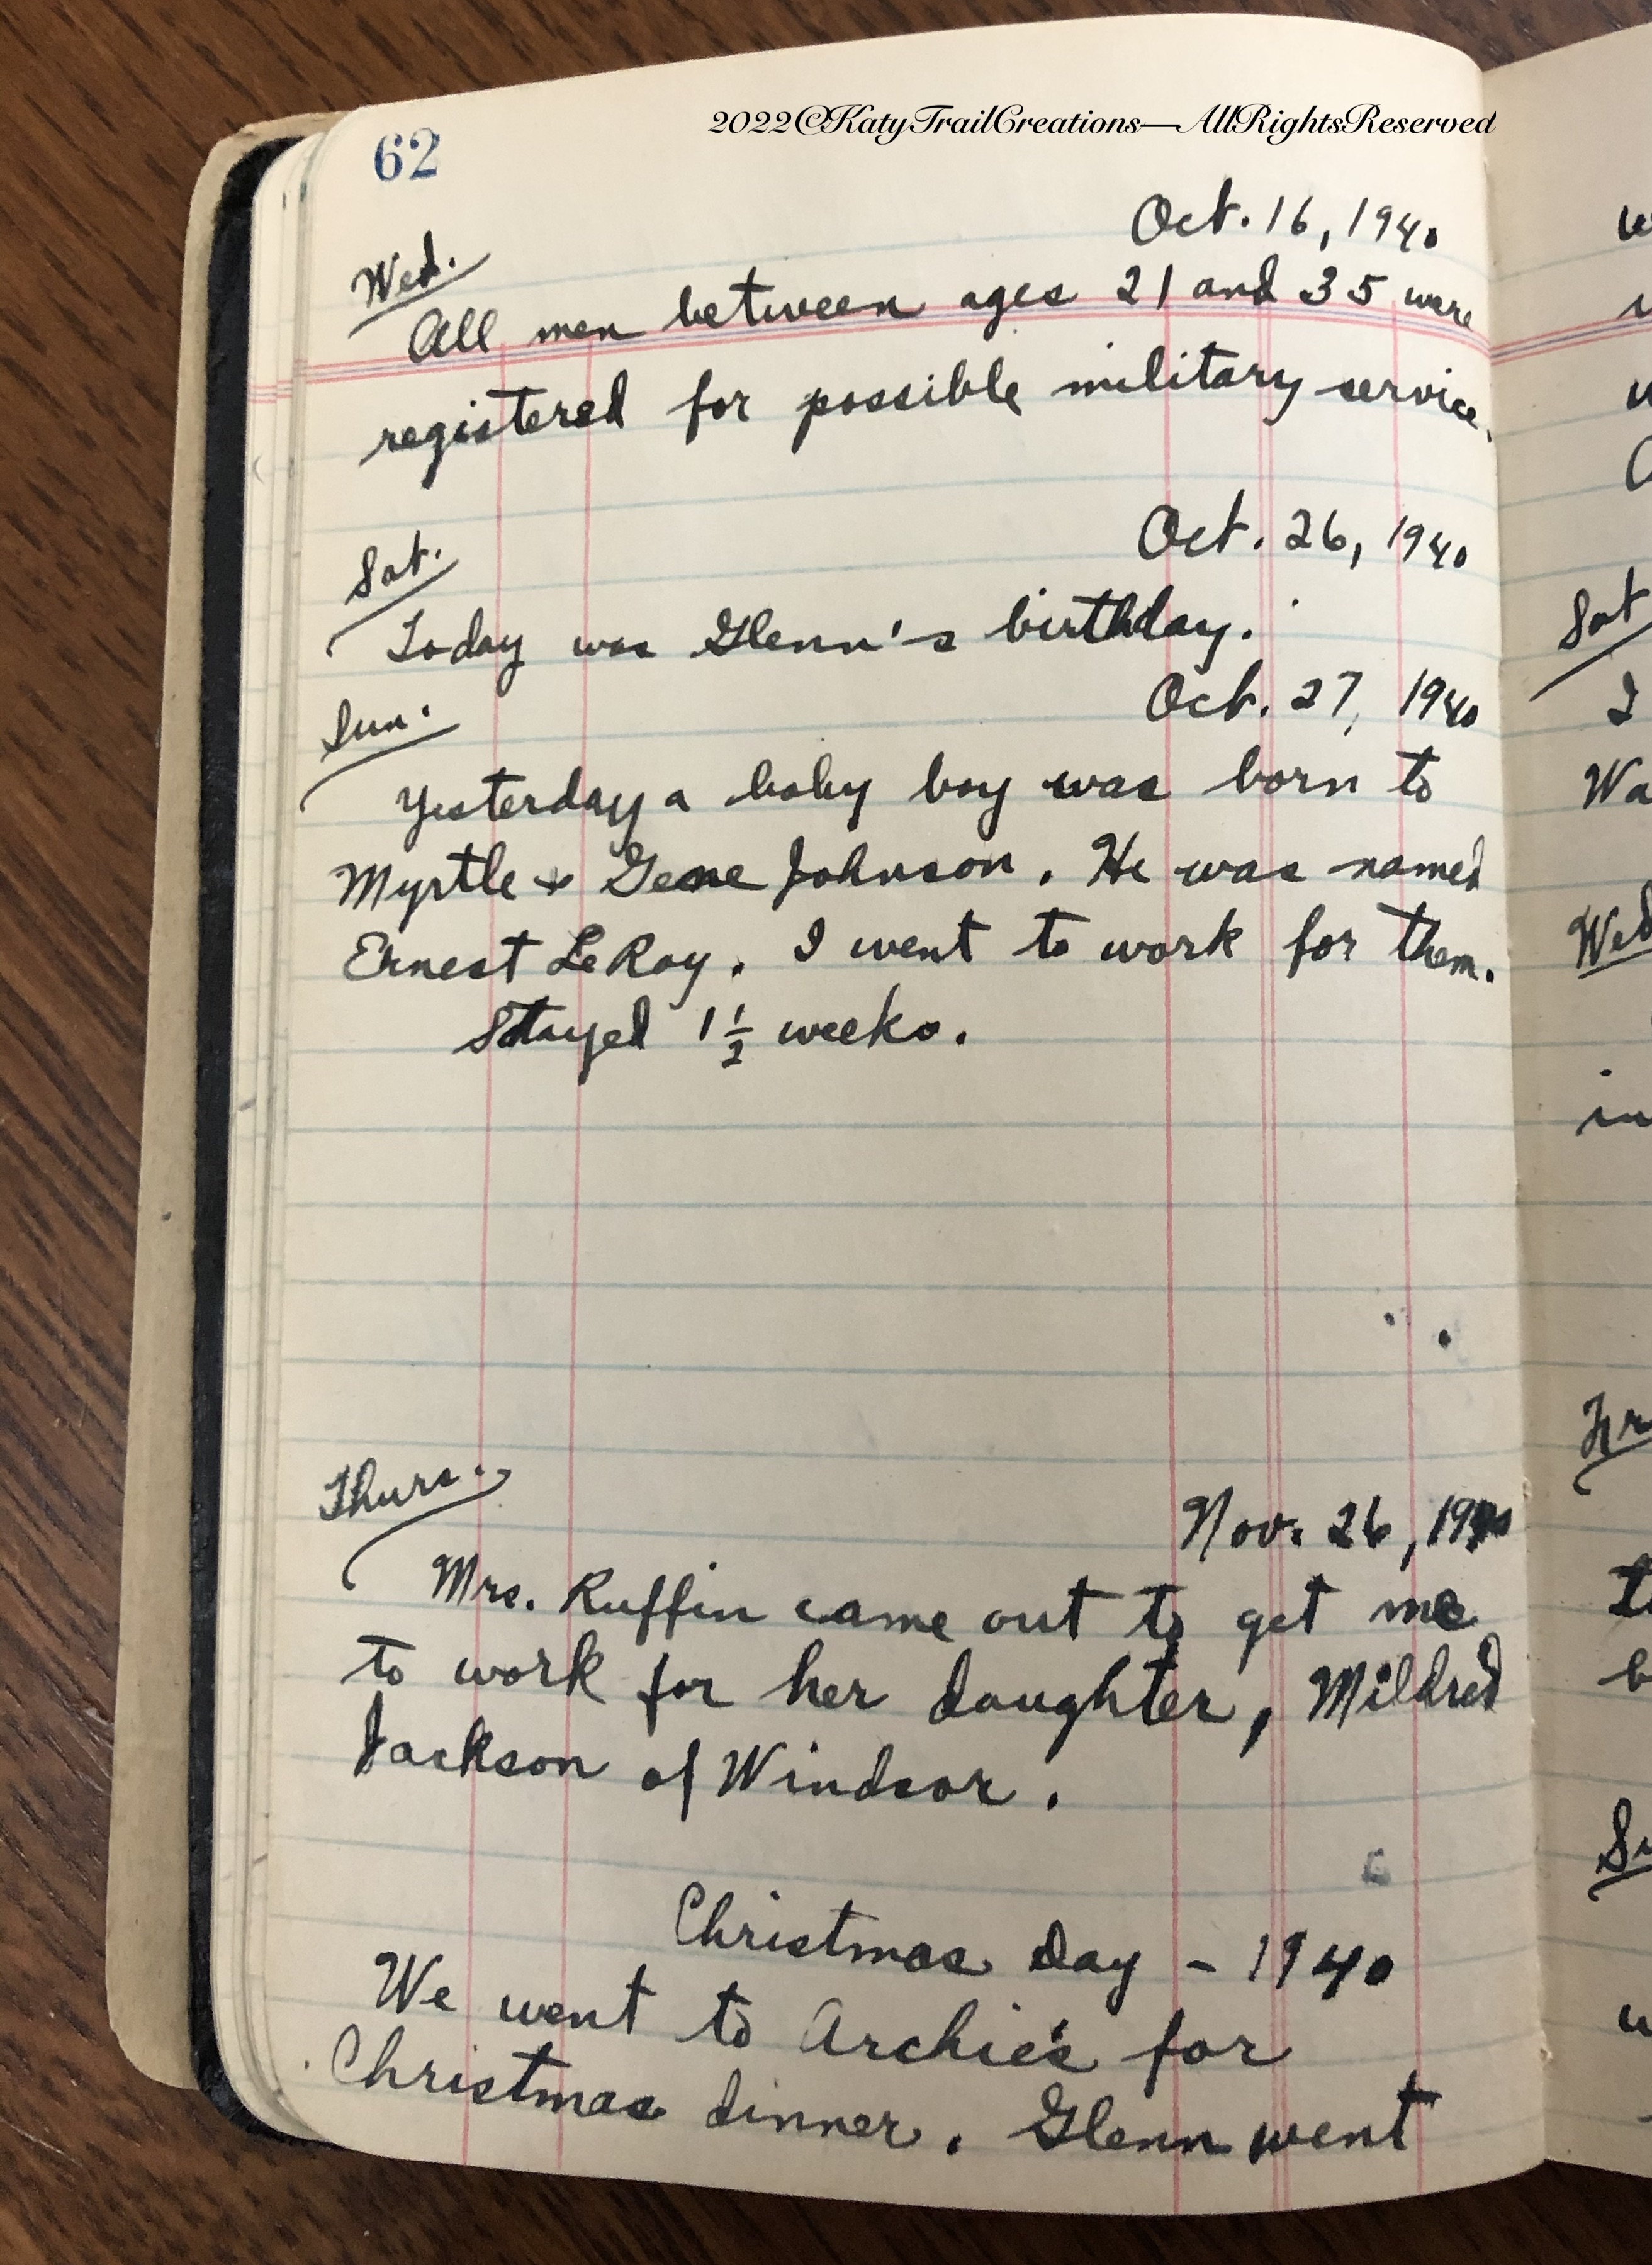 2022©KatyTrailCreations—AllRightsReserved
62
Oct. 16, 1940
Wed.
All men between ages 21 and 35 were
registered for possible military service.
Oct. 26, 1940
Sat.
Today was Glenn's birthday.
Oct. 27, 1940
Sun.
Yesterday a baby boy was born to
Myrtle & Gene Johnson. He was named
Ernest LeRoy. I went to work for them.
Stayed 1 1/2 weeks.
Thurs.
Nov. 26, 1940
Mrs. Ruffin came out to get me
to work for her daughter, Mildred
Jackson of Windsor.
Christmas Day - 1940
We went to Archie's for
Christmas dinner. Glenn went
Sat
I
Wa
Wed
in
Fr